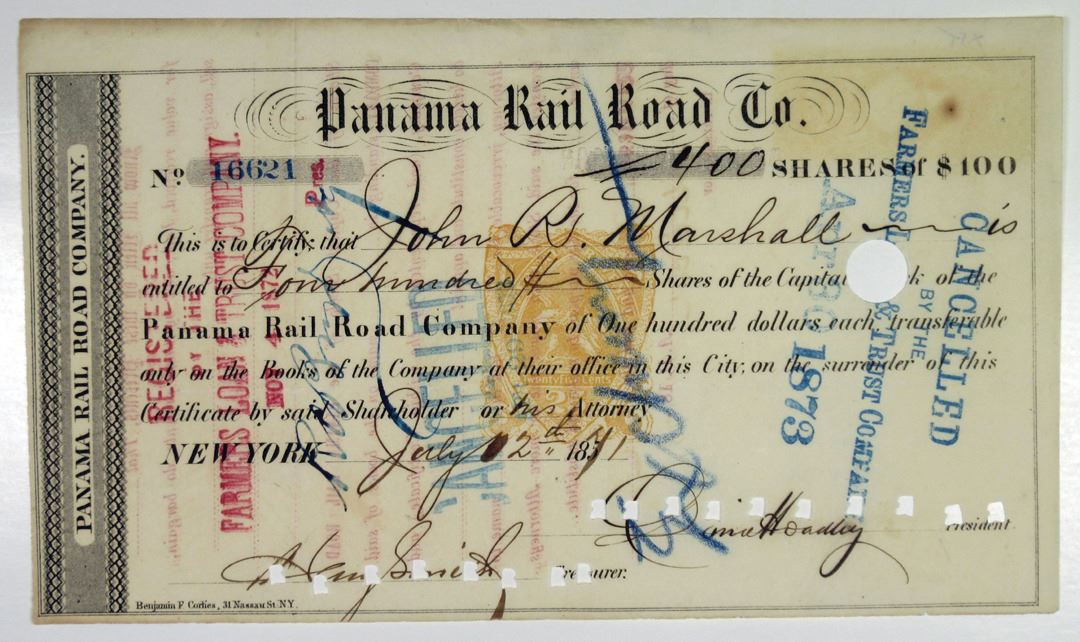 Panama Rail Road Co.
No 16621 400 SHARES of $100
This is to Certify that John R. Marshall is
entitled to Four hundred Shares of the Capital of the
Panama Rail Road Company of One hundred dollars each, transferable
only on the Books of the Company at their office in this City, on the surrender of this
Certificate by said Shareholder or his Attorney
NEW YORK July 12th 1871
President
Treasurer.
Benjamin F Corlies, 31 Nassau St NY.
PANAMA RAIL ROAD COMPANY.
REGISTERED
BY THE
FARMERS LOAN & TRUST COMPANY.
NOV 4 1872
Pres.
CANCELLED
Twenty Five Cents
CANCELLED
BY THE
FARMERS L & TRUST COMPAN
1873